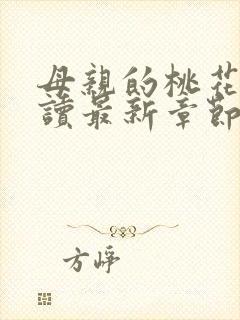 母親的桃花
讀最新章節
方崢